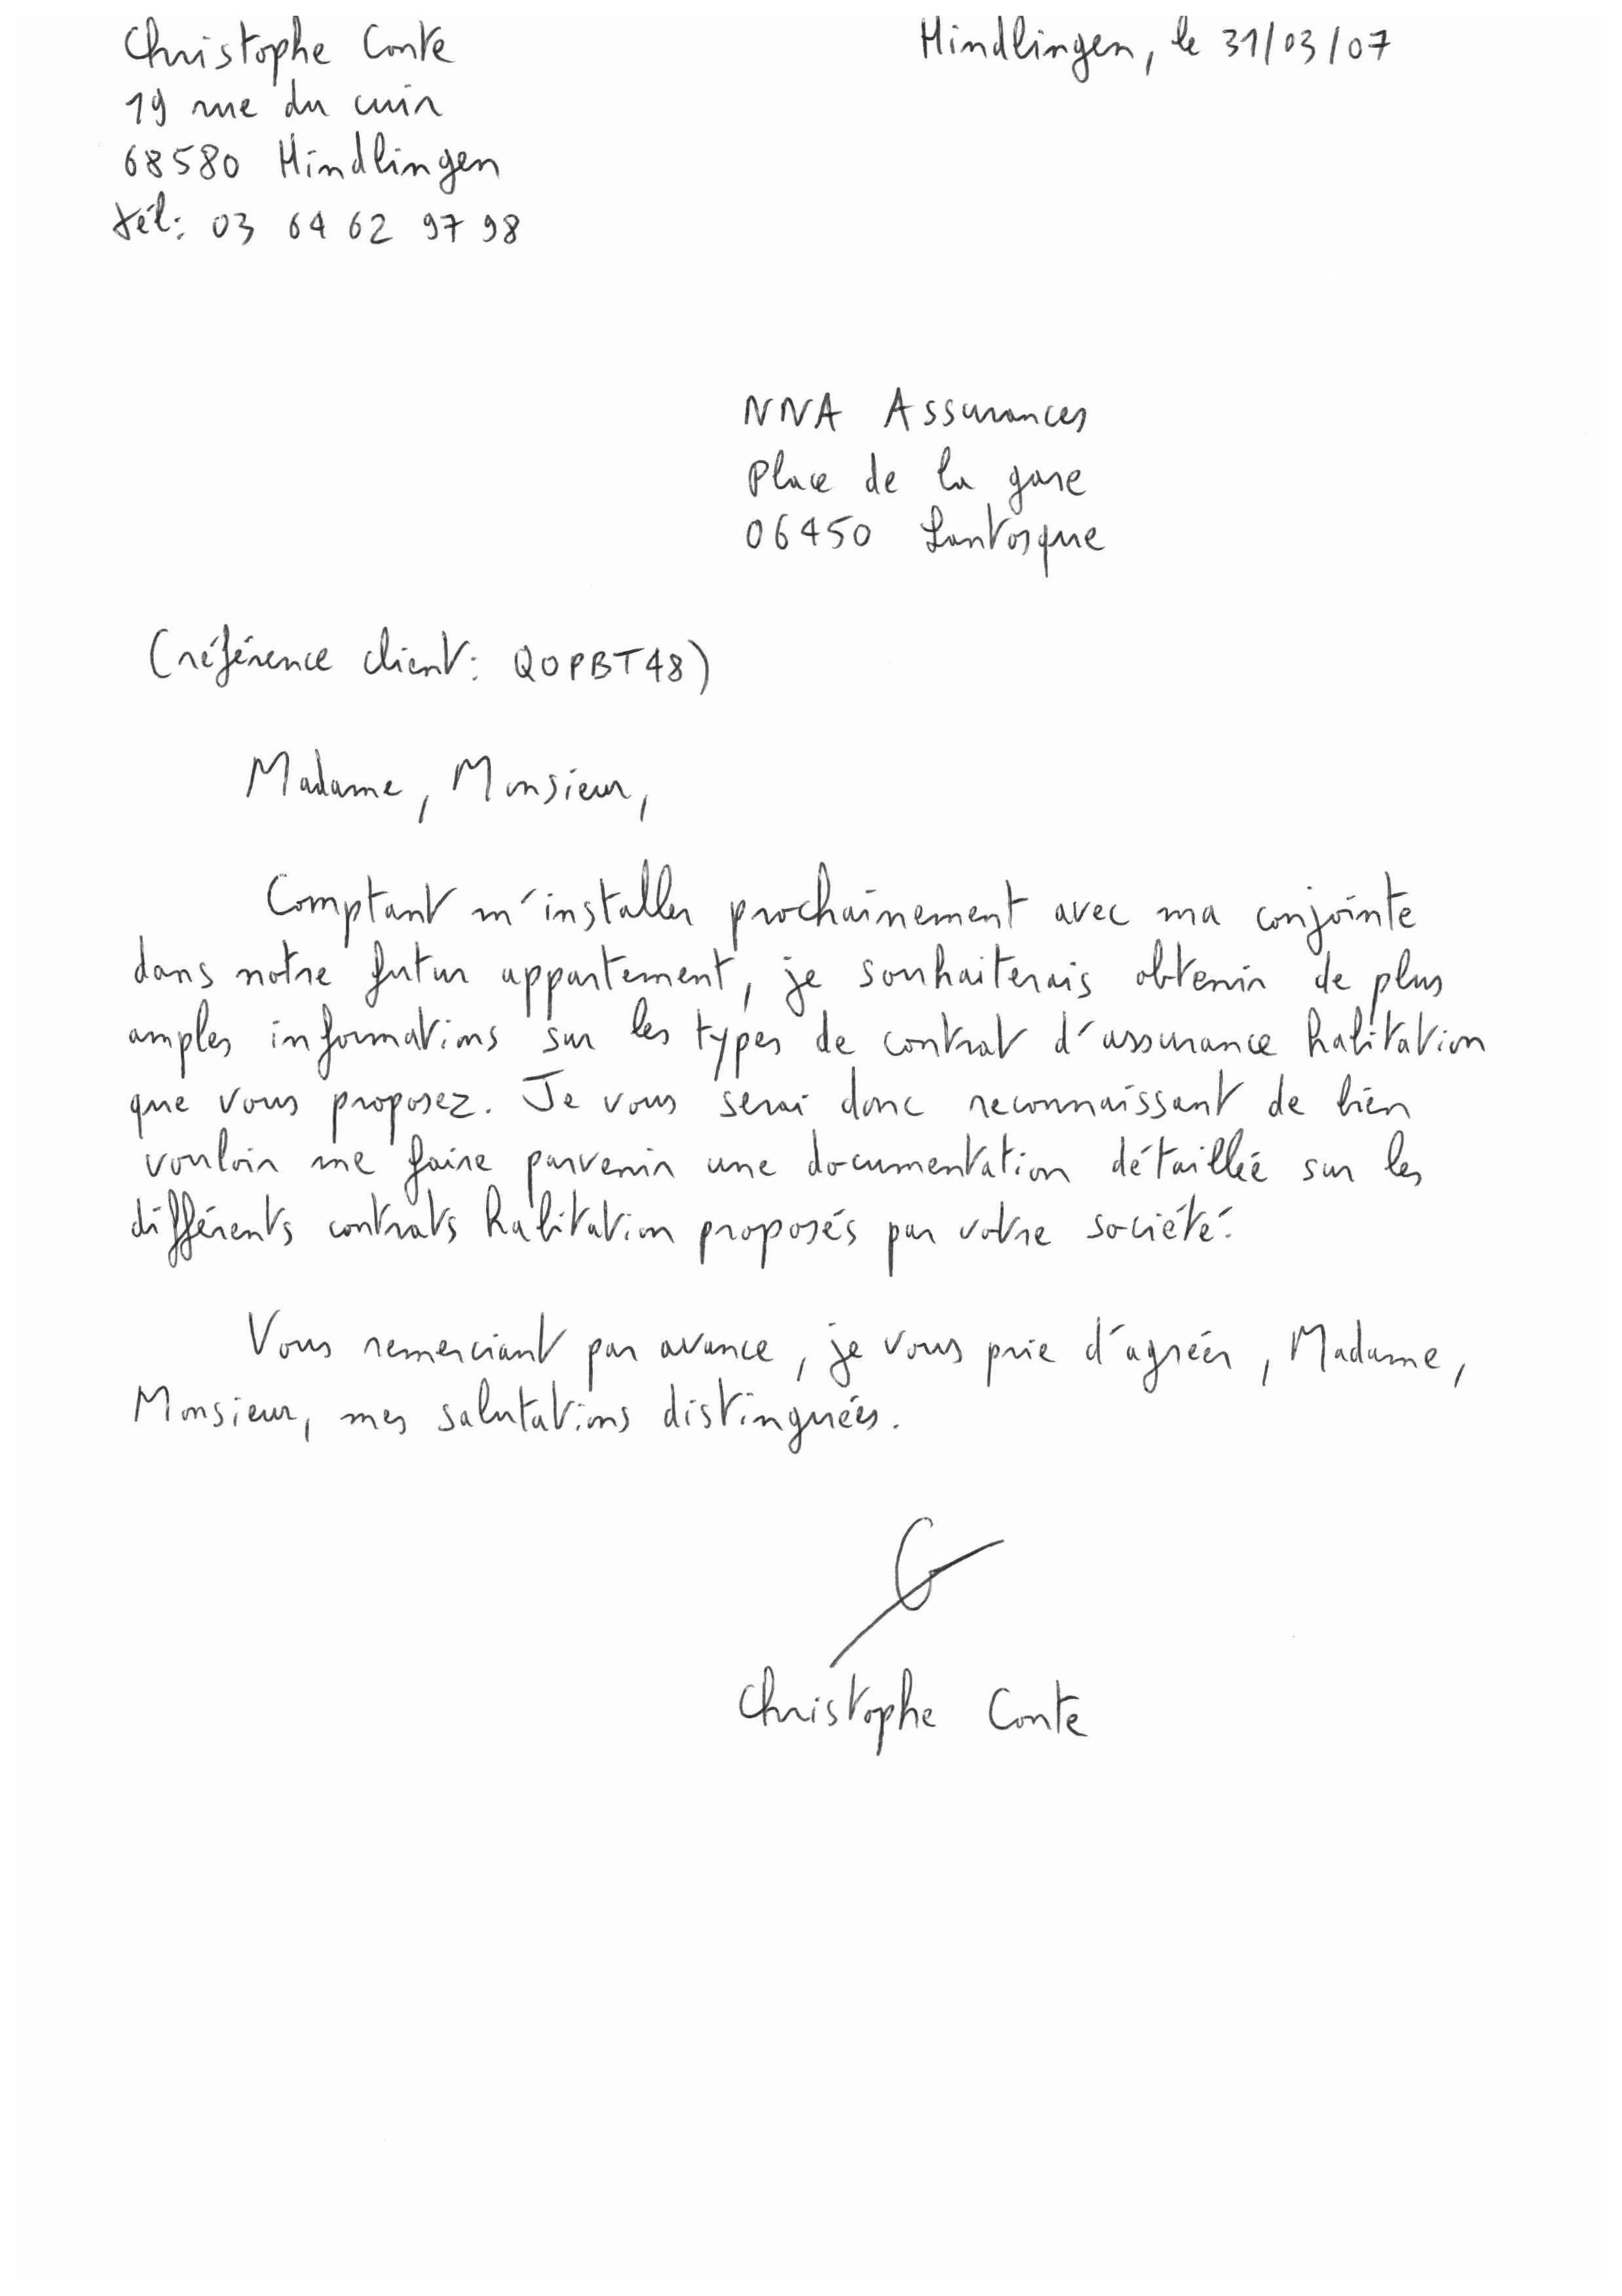 Christophe Conte
Hindlingen, le 31/03/07
19 rue du cuir
68580 Hindlingen
tél: 03 64 62 97 98
NNA Assurances
Place de la gare
06450 Lantosque
(référence client: QOPBT48)
Madame, Monsieur,
Comptant m'installer prochainement avec ma conjointe
dans notre futur appartement, je souhaiterais obtenir de plus
amples informations sur les types de contrat d'assurance habitation
que vous proposez. Je vous serai donc reconnaissant de bien
vouloir me faire parvenir une documentation détaillée sur les
différents contrats habitation proposés par votre société.
Vous remerciant par avance, je vous prie d'agréer, Madame,
Monsieur, mes salutations distinguées.
Christophe Conte